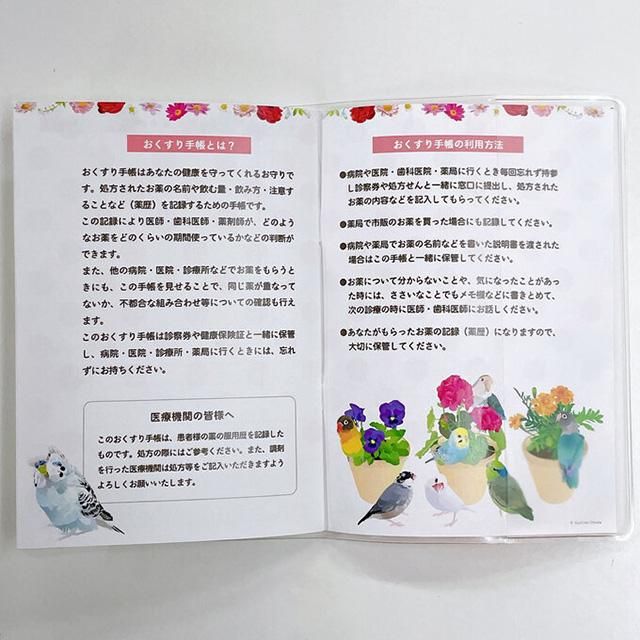 おくすり手帳とは？
おくすり手帳はあなたの健康を守ってくれるお守りで
す。処方されたお薬の名前や飲む量・飲み方・注意す
ることなど（薬歴）を記録するための手帳です。
この記録により医師・歯科医師・薬剤師が、どのよう
なお薬をどのくらいの期間使っているかなどの判断が
できます。
また、他の病院・医院・診療所などでお薬をもらうと
きにも、この手帳を見せることで、同じ薬が重なって
ないか、不都合な組み合わせ等についての確認も行え
ます。
このおくすり手帳は診察券や健康保険証と一緒に保管
し、病院・医院・診療所・薬局に行くときには、忘れ
ずにお持ちください。
医療機関の皆様へ
このおくすり手帳は、患者様の薬の服用歴を記録した
ものです。処方の際にはご参考ください。また、調剤
を行った医療機関は処方等をご記入いただきますよう
よろしくお願いいたします。
おくすり手帳の利用方法
●病院や医院・歯科医院・薬局に行くとき毎回忘れず持参
し診察券や処方せんと一緒に窓口に提出し、処方された
お薬の内容などを記入してもらってください。
●薬局で市販のお薬を買った場合にも記録してください。
●病院や薬局でお薬の名前などを書いた説明書を渡された
場合はこの手帳と一緒に保管してください。
●お薬について分からないことや、気になったことがあっ
た時には、ささいなことでもメモ欄などに書きとめて、
次の診療の時に医師・歯科医師にお話しください。
●あなたがもらったお薬の記録（薬歴）になりますので、
大切に保管してください。